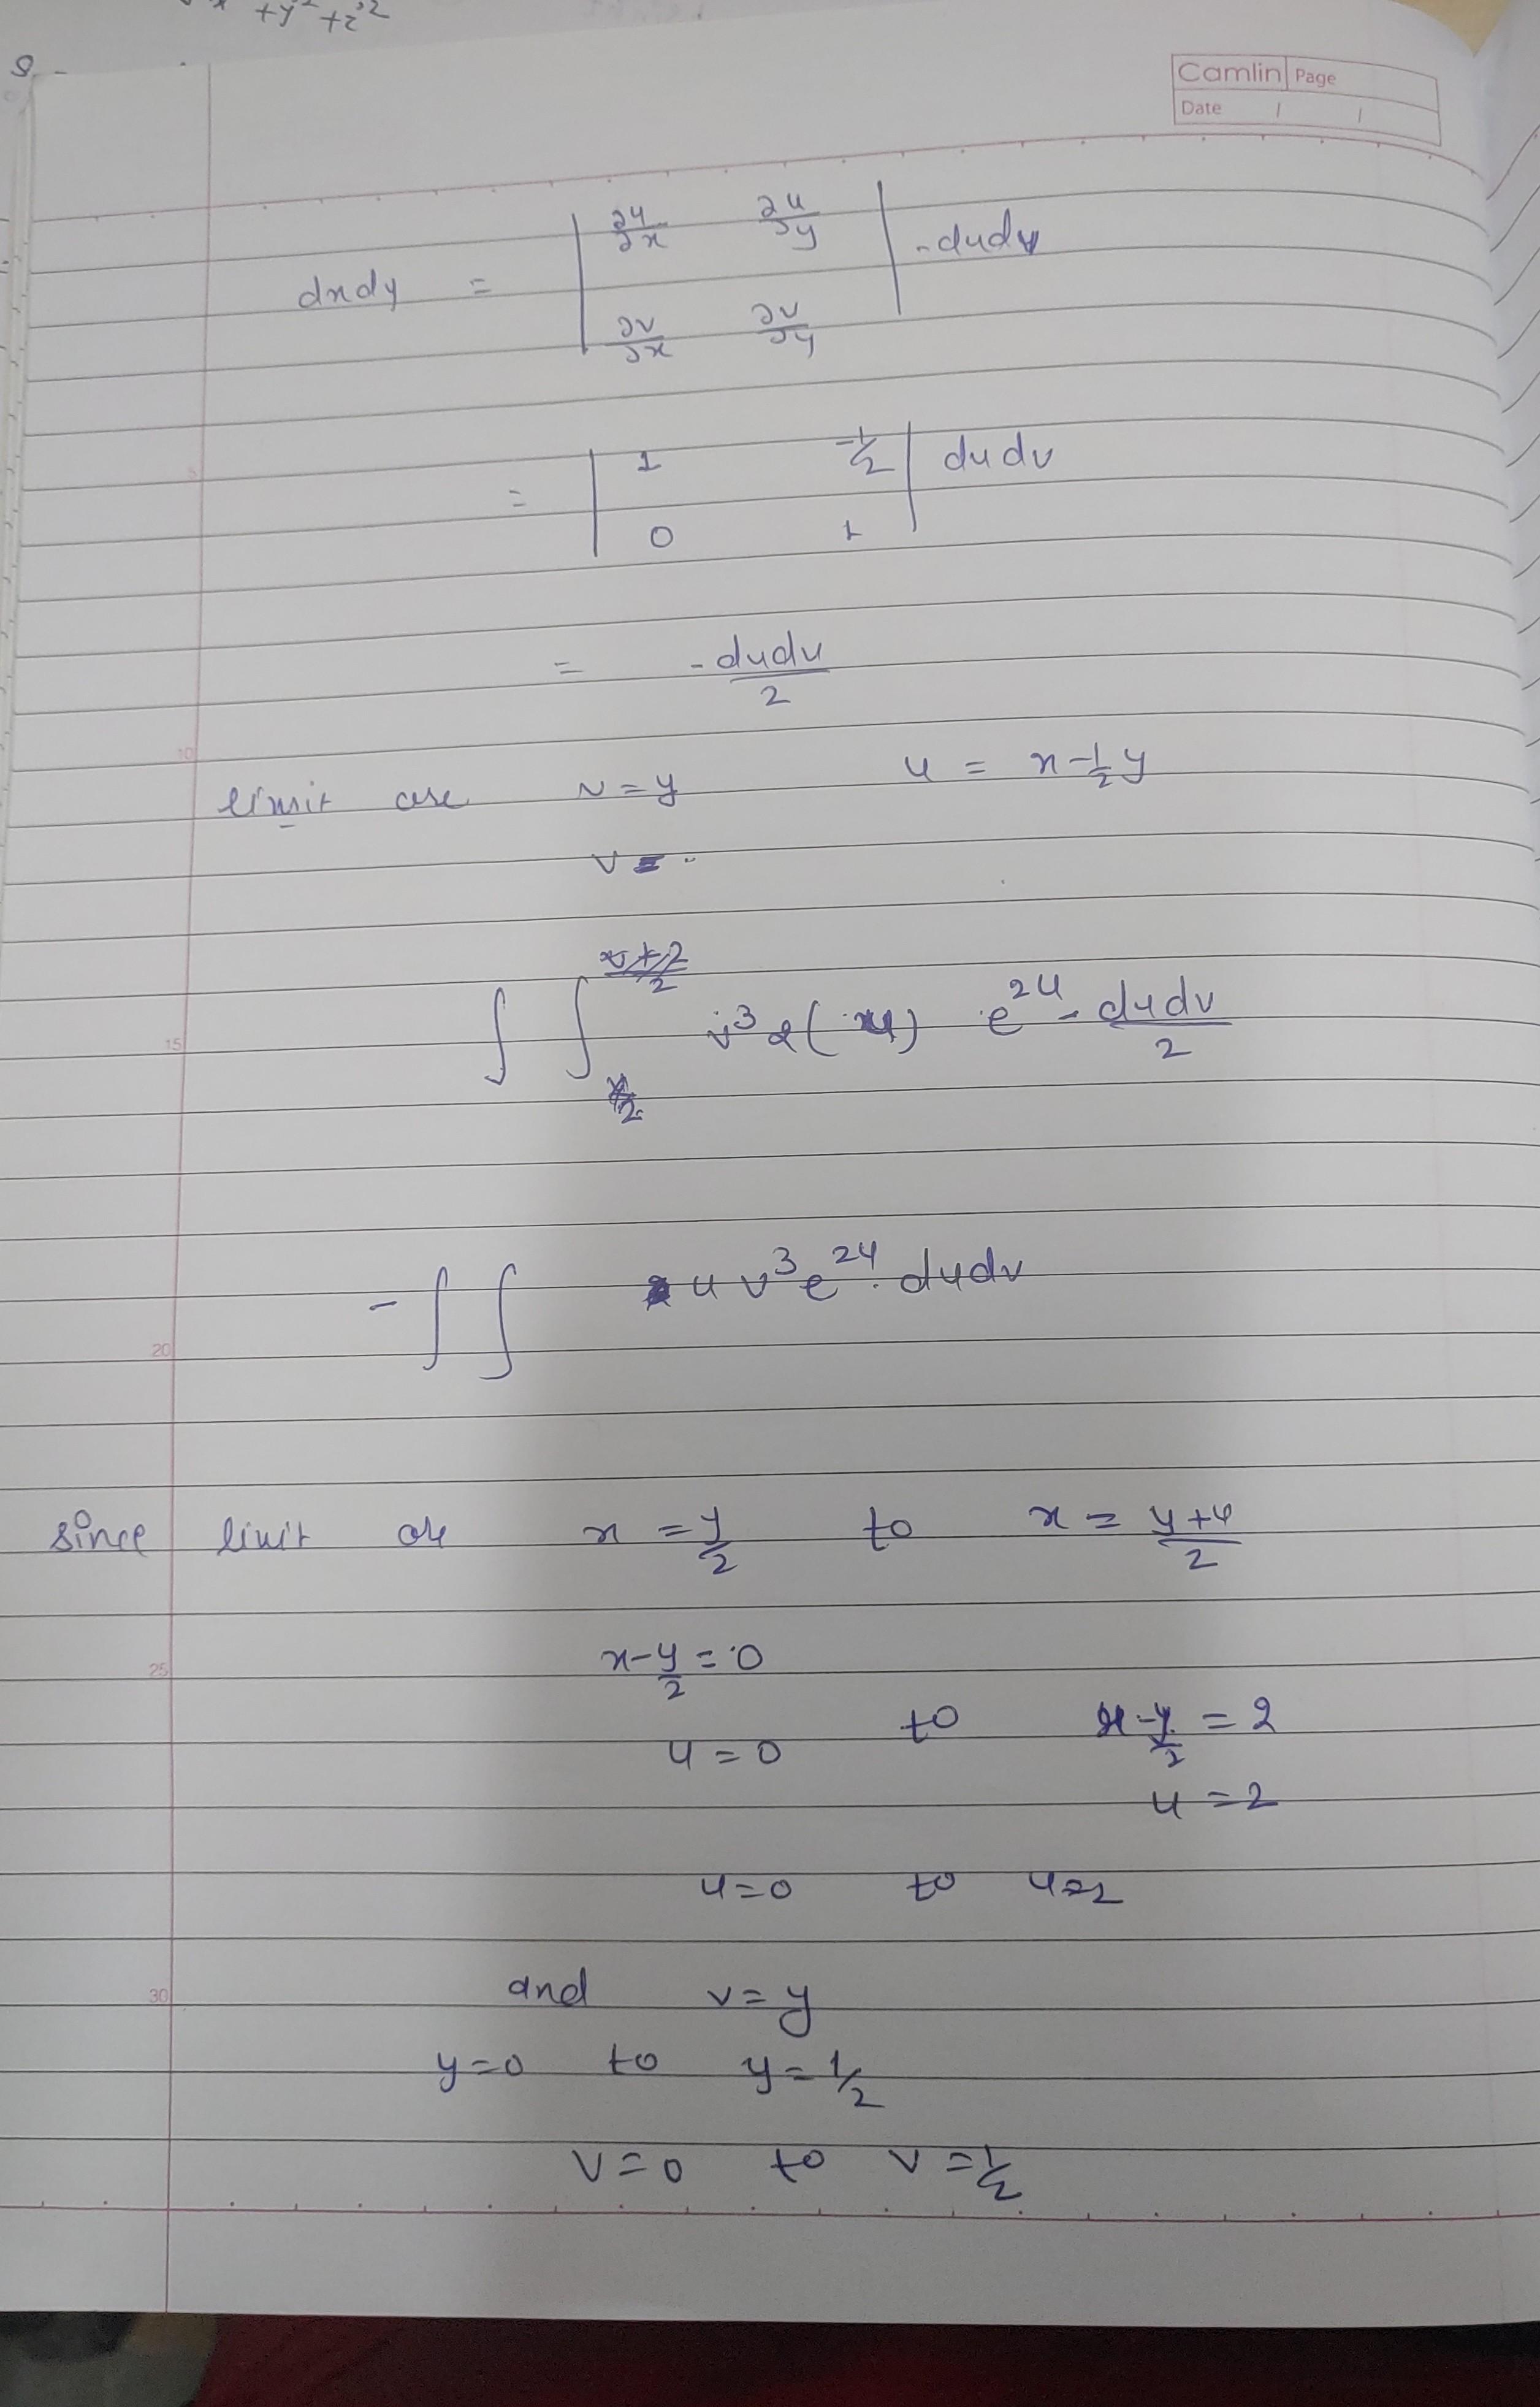 +y² + z²
Camlin Page
Date / /
dxdy = | ∂u/∂x ∂u/∂y | · dudv
| ∂v/∂x ∂v/∂y |
= | 1 -1/2 | dudv
| 0 1 |
= -dudv/2
10
limit are v = y u = x - 1/2 y
v =
15
∫ ∫ v³ 2(u) e^2u - dudv/2
- ∫ ∫ u v³ e^2u . dudv
20
since limit are x = y/2 to x = y+4/2
25
x - y/2 = 0
to x - y/2 = 2
u = 0
u = 2
u = 0 to u = 2
30
and v = y
y = 0 to y = 1/2
v = 0 to v = 1/2